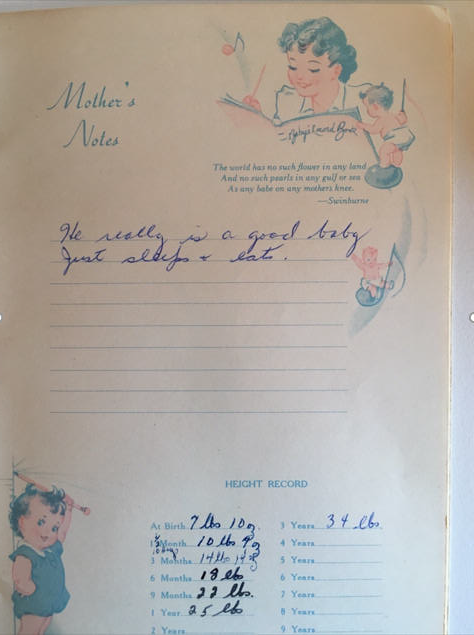 Mother's
Notes
Baby's Record Book
The world has no such flower in any land
And no such pearls in any gulf or sea
As any babe on any mothers knee.
—Swinburne
He really is a good baby
Just sleeps + eats.
HEIGHT RECORD
At Birth 7 lbs 10 oz.
1 Month 10 lbs 9 oz
3 Months 14 lbs 14 oz
6 Months 18 lbs
9 Months 22 lbs.
1 Year 25 lbs
2 Years
3 Years 34 lbs.
4 Years
5 Years
6 Years
7 Years
8 Years
9 Years